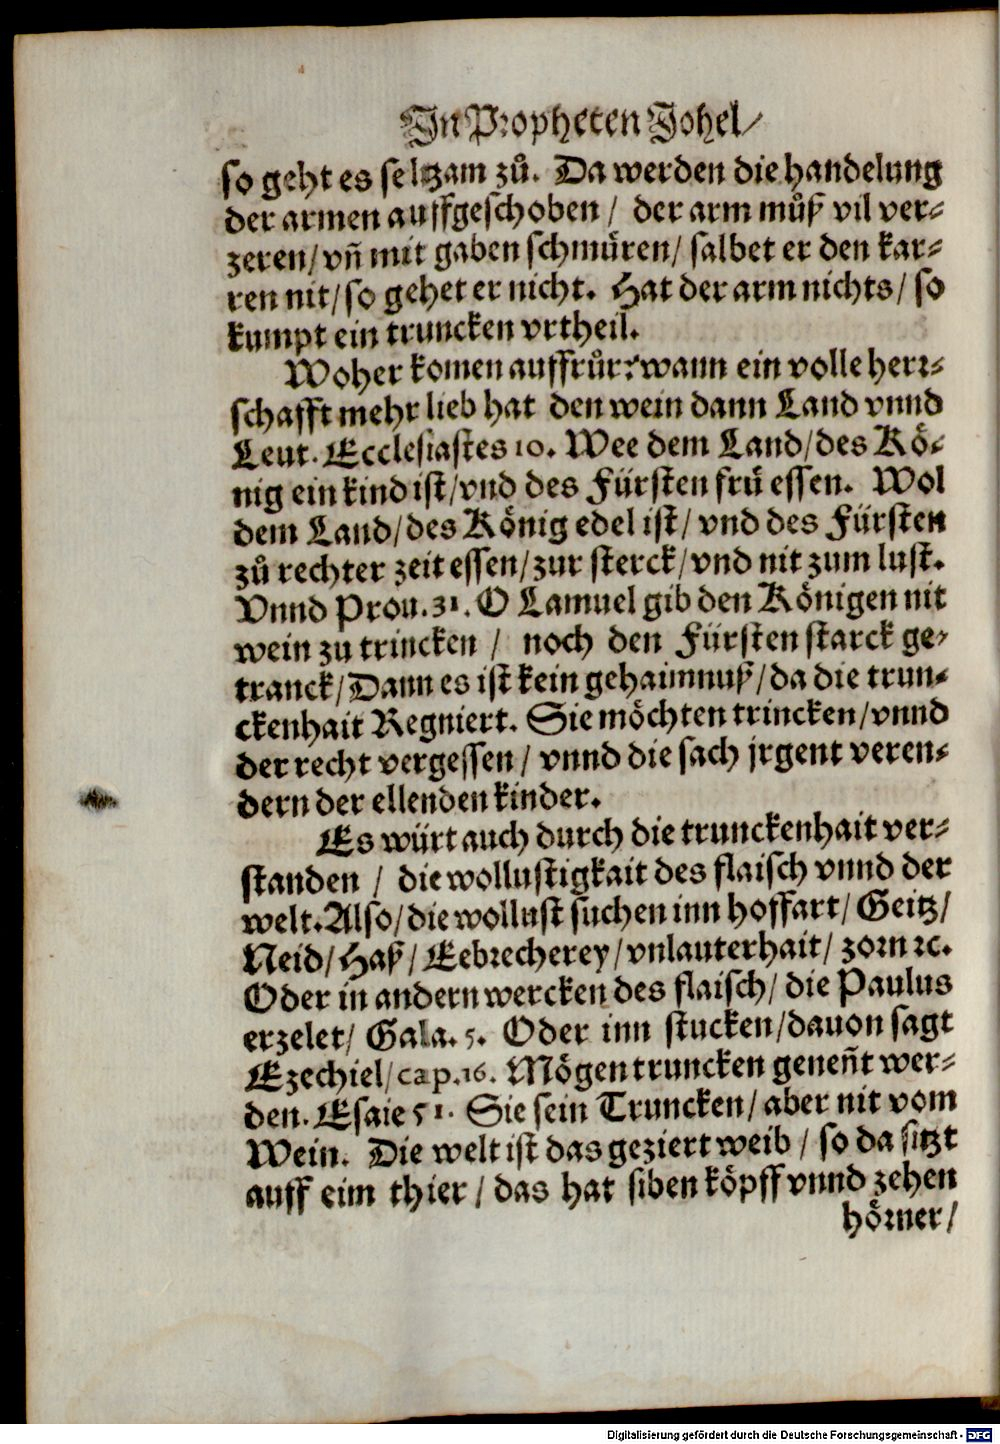 In Propheten Johel/
so geht es seltzam zuͦ. Da werden die handelung
der armen auffgeschoben / der arm muͦß vil ver-
zeren/vñ mit gaben schmüren/ salbet er den kar-
ren nit/so gehet er nicht. Hat der arm nichts/ so
kumpt ein truncken vrtheil.
Woher komen auffruͦr? wann ein volle herr-
schafft mehr lieb hat den wein dann Land vnnd
Leut. Ecclesiastes 10. Wee dem Land/des Kö-
nig ein kind ist/vnd des Fürsten frü essen. Wol
dem Land/des König edel ist/ vnd des Fürsten
zuͦ rechter zeit essen/zur sterck/vnd nit zum lust.
Vnnd Prou.31. O Lamuel gib den Königen nit
wein zu trincken / noch den Fürsten starck ge-
tranck/Dann es ist kein gehaimnuß/da die trun-
ckenhait Regniert. Sie möchten trincken/vnnd
der recht vergessen/ vnnd die sach jrgent veren-
dern der ellenden kinder.
Es würt auch durch die trunckenhait ver-
standen / die wollustigkait des flaisch vnnd der
welt. Also/die wollust suchen inn hoffart/ Geitz/
Neid/Haß/Eebrecherey/vnlauterhait/ zorn ꝛc.
Oder in andern wercken des flaisch/ die Paulus
erzelet/ Gala. 5. Oder inn stucken/dauon sagt
Ezechiel/cap.16. Mögen truncken geneñt wer-
den. Esaie 51. Sie sein Truncken/ aber nit vom
Wein. Die welt ist das geziert weib / so da sitzt
auff eim thier/ das hat siben köpff vnnd zehen
hörner/
Digitalisierung gefördert durch die Deutsche Forschungsgemeinschaft - DFG